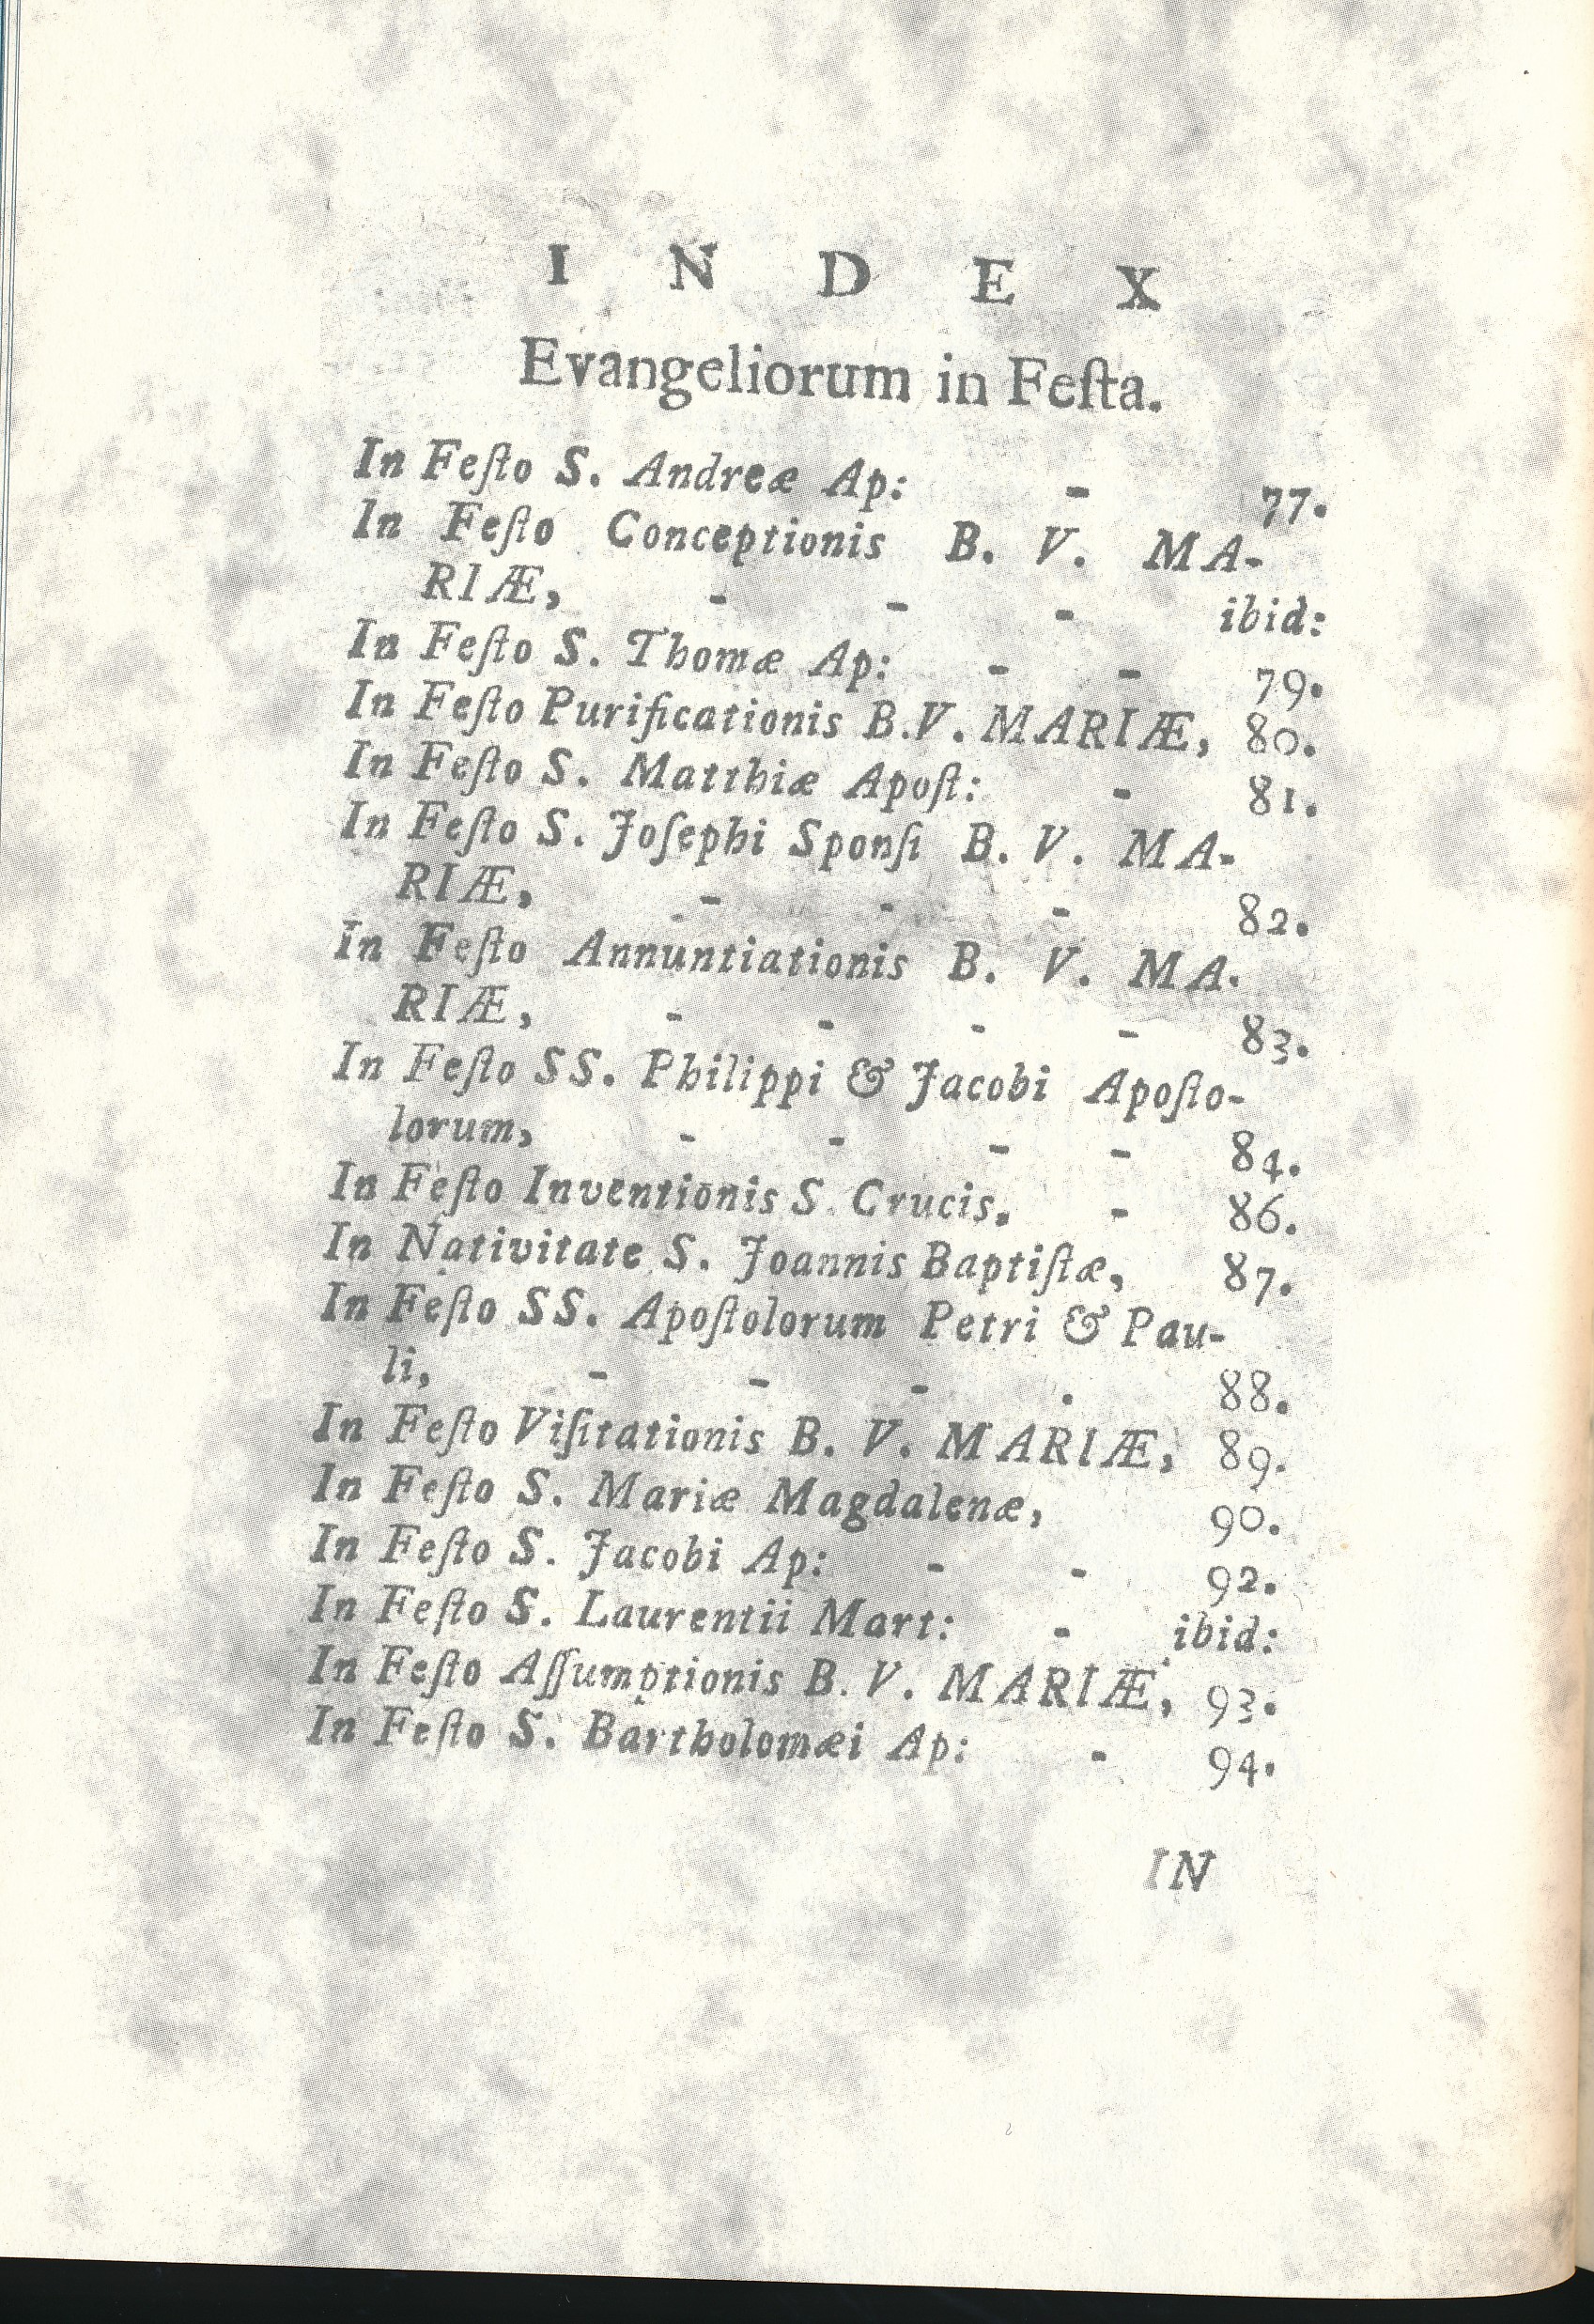 I N D E X
Evangeliorum in Feſta.
In Feſto S. Andreæ Ap: - 77.
In Feſto Conceptionis B. V. MA-
RIÆ, - - - ibid:
In Feſto S. Thomæ Ap: - - 79.
In Feſto Purificationis B.V. MARIÆ, 80.
In Feſto S. Matthiæ Apoſt: - 81.
In Feſto S. Joſephi Sponſi B. V. MA-
RIÆ, - - - 82.
In Feſto Annuntiationis B. V. MA-
RIÆ, - - - - 83.
In Feſto SS. Philippi & Jacobi Apoſto-
lorum, - - - - 84.
In Feſto Inventionis S. Crucis, - 86.
In Nativitate S. Joannis Baptiſtæ, 87.
In Feſto SS. Apoſtolorum Petri & Pau-
li, - - - - 88.
In Feſto Viſitationis B. V. MARIÆ, 89.
In Feſto S. Mariæ Magdalenæ, 90.
In Feſto S. Jacobi Ap: - - 92.
In Feſto S. Laurentii Mart: - ibid:
In Feſto Aſſumptionis B. V. MARIÆ, 93.
In Feſto S. Bartholomæi Ap: - 94.
IN